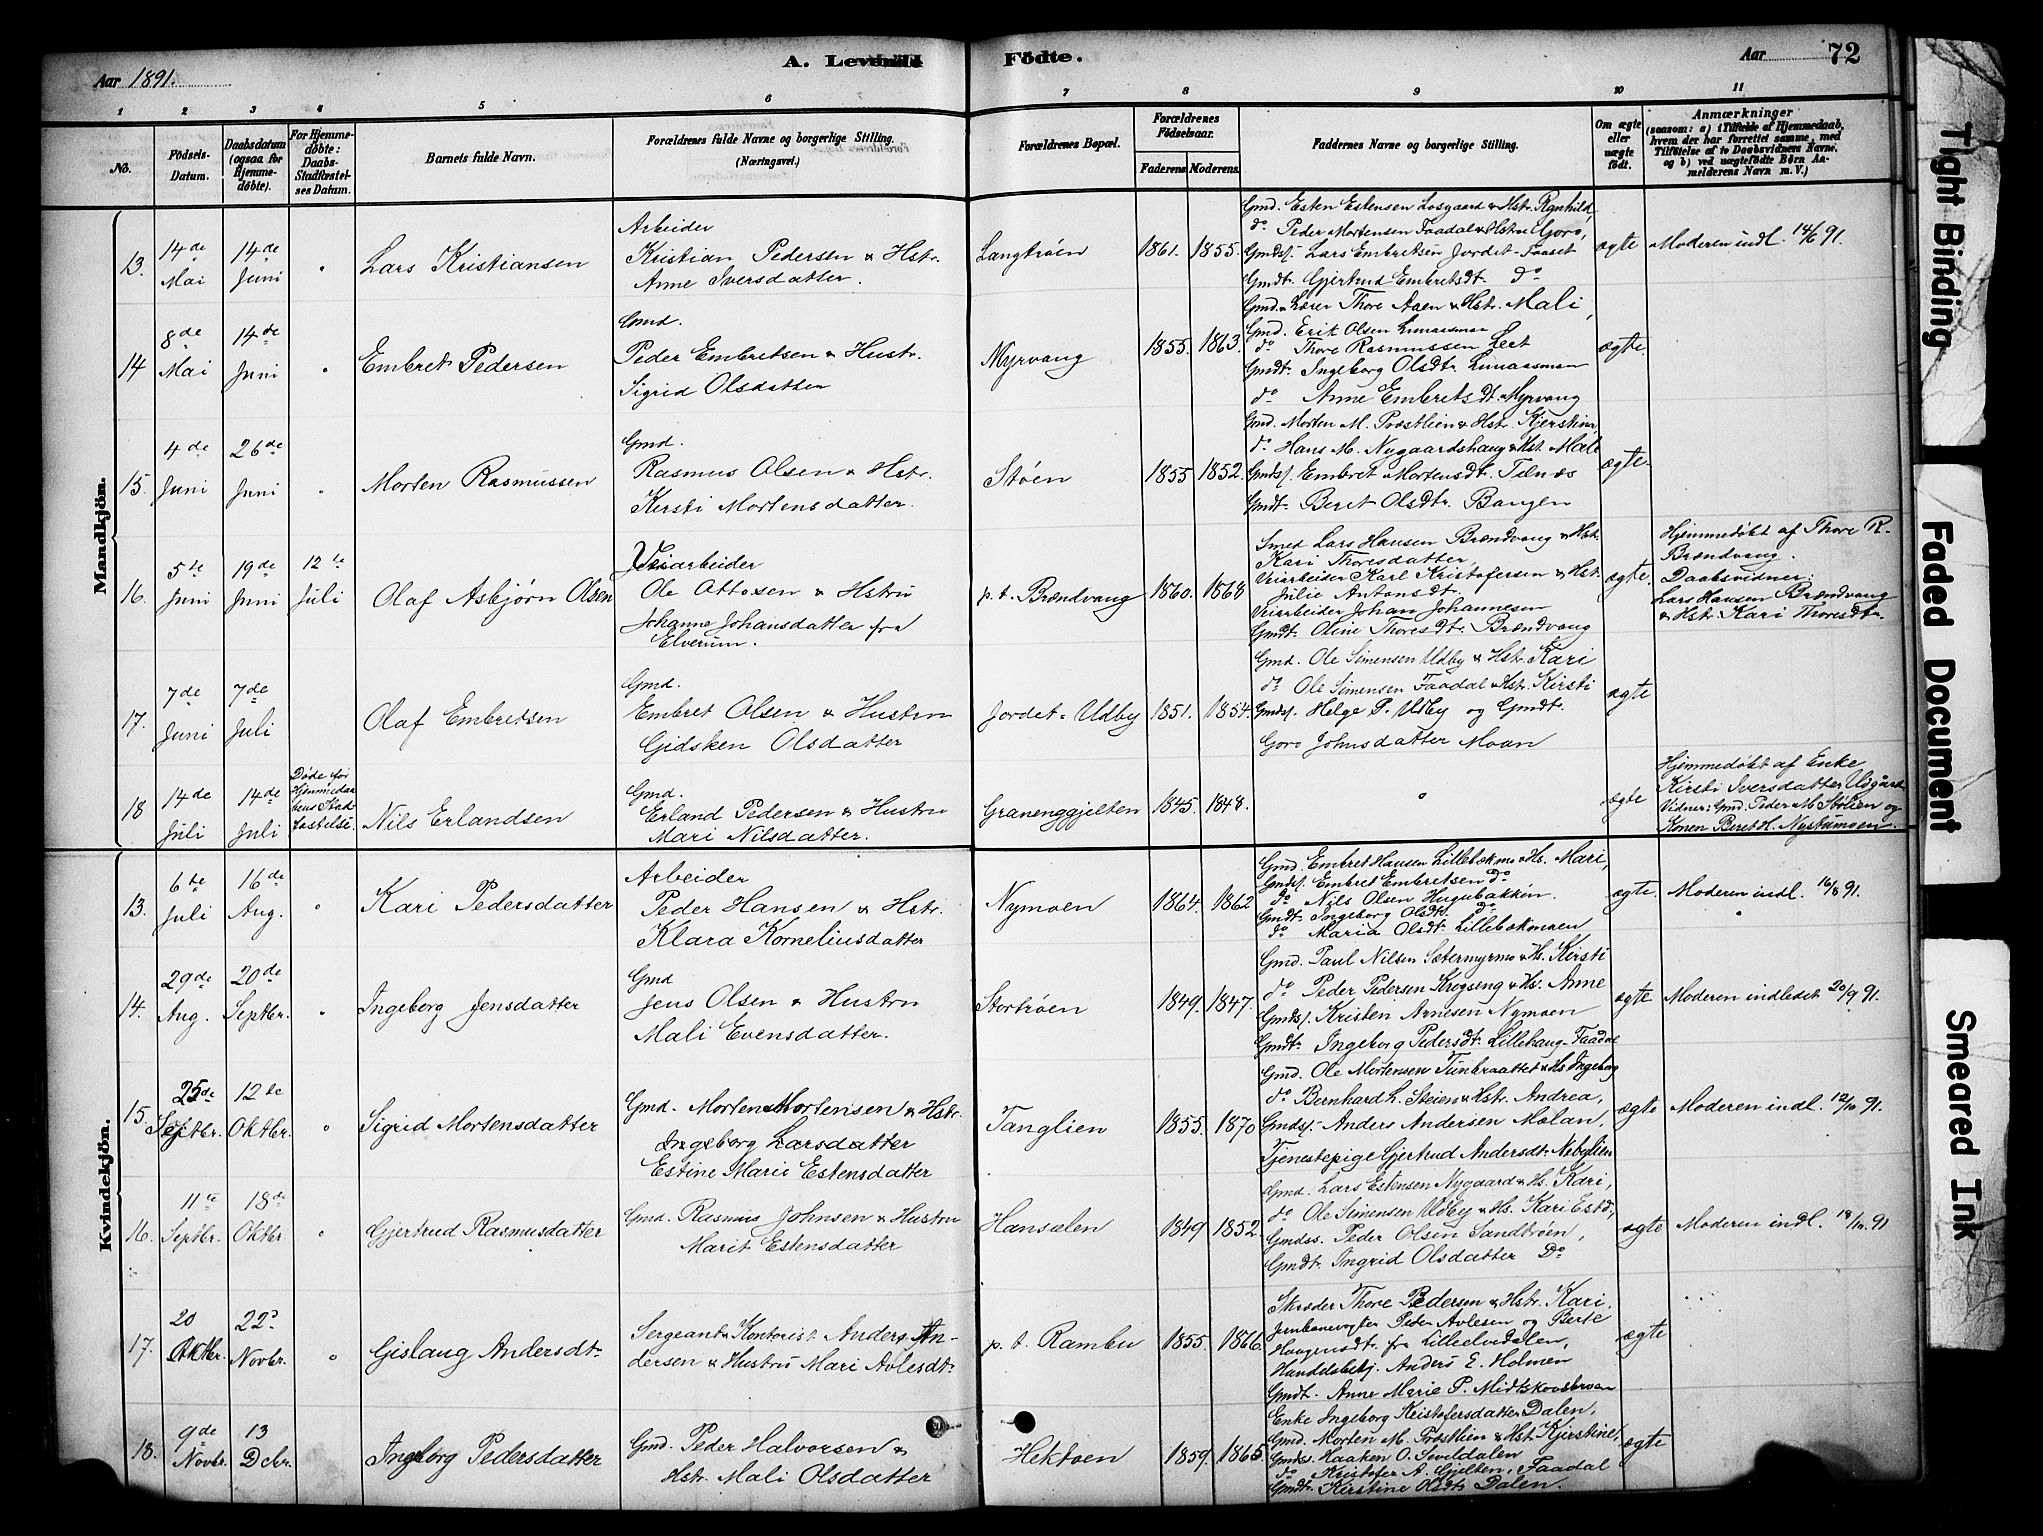 Aar 1891.
A. Levende
Födte.
Aar
72
1
2
3
4
5
6
7
8
9
10
11
No.
Födsels-
Datum.
Daabsdatum
(ogsaa for
Hjemme-
döbte).
For Hjemme-
döbte:
Daabs-
Stadfæstel-
ses Datum.
Barnets fulde Navn.
Forældrenes fulde Navne og borgerlige Stilling.
(Næringsvei.)
Forældrenes Bopæl.
Forældrenes
Födselsaar.
Faderens.
Moderens.
Faddernes Navne og borgerlige Stilling.
Om ægte
eller
uægte
födt.
Anmærkninger
(saasom: a) i Tilfælde af Hjemmedaab,
hvem der har forrettet samme, med
Tilföielse af to Daabsvidners Navne,
og b) ved uægtefödte Börn An-
melderens Navn m. V.)
Mandkjön.
13.
14de
Mai
14de
Juni
"
Lars Kristiansen
Arbeider
Kristian Pedersen & Hstr.
Anne Iversdatter.
Langtrøen
1861.
1855.
Gmd. Esten Estensen Losgaard & Hstr. Ragnhild,
do Peder Mortensen Faadal & Hstru Goro,
Gmdsf. Lars Embretsen Jordet-Faaset
Gmdt. Gjertrud Embretsdt. do
Gmd. & Lærer Thore Aaen & Hstr. Mali,
ægte
Moderen indl. 14/6 91.
14
8de
Mai
14de
Juni
"
Embret Pedersen
Gmd.
Peder Embretsen & Hustr.
Sigrid Olsdatter
Myrvang
1855.
1863.
Gmd. Erik Olsen Lunaasmon
do Thore Rasmussen Leet
Gmdt. Ingeborg Olsdt. Lunaasmon
do Anne Embretsdt. Myrvang
ægte.
15.
4de
Juni
26de
Juni
"
Morten Rasmussen
Gmd.
Rasmus Olsen & Hstr.
Kirsti Mortensdatter.
Støen
1855
1852.
Gmd. Morten M. Præstlien & Hstr. Kjerstine,
do Hans M. Nygaardshaug & Hst. Mali
Gmdsf. Embret Mortensdt. Telnæs
Gmdt. Beret Olsdtr. Bangen
ægte.
16.
5te
Juni
19de
Juni
12te
Juli
Olaf Asbjørn Olsen
Veiarbeider
Ole Ottosen & Hstru
Johanne Johansdatter fra
Elverum.
p.t. Brændvang
1860.
1868
Smed Lars Hansen Brændvang & Hst.
Kari Thoresdatter
Veiarbeider Karl Kristofersen & Hst.
Julie Antonsdt.
Veiarbeider Johan Johannesen
Gmdt. Oline Thoresdt. Brændvang
ægte.
Hjemmedøbt af Thore R.
Brændvang.
Daabsvidner:
Lars Hansen Brændvang
& Hstr. Kari Thoresdt.
17.
7de
Juni
7de
Juli
Olaf Embretsen
Gmd.
Embret Olsen & Hustru
Gidsken Olsdatter
Jordet-Udby
1851.
1854.
Gmd. Ole Simensen Udby & Hst. Kari
do Ole Simensen Faadal & Hstr. Kirsti
Gmdsf. Helge P. Udby og Gmdt.
Goro Johnsdatter Moan
ægte
18
14de
Juli
14de
Juli
Døde før
Hjemmedaa-
bens Stad-
fæstelse.
Nils Erlandsen
Gmd.
Erland Pedersen & Hustru
Mari Nilsdatter.
Granenggjelten
1845.
1848.
"
ægte
Hjemmedøbt af Enke
Kirsti Iversdatter Utigard
Vidner: Gmd. Peder M. Stølien og
Konen Beret H. Nystumoen.
Kvindekjön.
13.
6te
Juli
16de
Aug.
"
Kari Pedersdatter
Arbeider
Peder Hansen & Hstr.
Klara Korneliusdatter
Nymoen
1864.
1862
Gmd. Embret Hansen Lillebækmo & Hs. Mari,
Gmdsf. Embret Embretsen do
do Nils Olsen Hugubakken.
Gmdt. Ingeborg Olsdt. do
do Maria Olsdt. Lillebækmoen
ægte.
Moderen indl. 16/8 91.
14.
29de
Aug.
20de
Septbr.
"
Ingeborg Jensdatter
Gmd
Jens Olsen & Hustru
Mali Evensdatter.
Stortrøen
1849.
1847.
Gmd. Paul Nilsen Sætermyrmo & Hs. Kirsti
do Peder Pedersen Krogseng & Hs. Anne
Gmdsf. Kristen Arnesen Nymoen
Gmdt. Ingeborg Pedersdt. Lillehaug-Faadal
ægte
Moderen indledet 20/9 91.
15.
25de
Septbr.
12te
Oktbr.
"
Sigrid Mortensdatter
Gmd. Morten Mortensen & Hstr.
Ingeborg Larsdatter
Estine Marie Estensdatter
Tanglien
1855.
1870
Gmd. Ole Mortensen Tunbraattet & Hs. Ingeborg
do Bernhard L. Steien & Hstr. Andrea,
Gmdsf. Anders Andersen Molan,
Tjenestepige Gjertrud Andersdt. Nebylien
ægte
Moderen indl. 12/10 91.
16.
11te
Septbr.
18de
Oktbr
"
Gjertrud Rasmusdatter
Gmd. Rasmus Johnsen & Hustru
Marit Estensdatter
Hansælen
1849
1852.
Gmd. Lars Estensen Nygaard & Hs. Kari,
do Ole Simensen Udby & Hs. Kari Estd.,
Gmdss. Peder Olsen Sandtrøen,
Gmdt. Ingrid Olsdatter Do
ægte
Moderen indl. 18/10. 91
17.
20
Oktbr.
22de
Novbr.
"
Gislaug Andersdt.
Sergeant & Kontorist Anders An-
dersen & Hustru Mari Avlesdt.
p.t. Rambu
1855.
1866.
Skræder Thore Pedersen & Hstr. Kari.
Jernbanevogter Peder Avlesen og Berte
Haagensdt. fra Lilleelvedalen,
Handelsbetj. Anders E. Holmen
Gmdt. Anne Marie P. Midtskovbervan
ægte
18.
9de
Novbr.
13
Dcbr.
Ingeborg Pedersdatter
Gmd. Peder Halvorsen &
Hstr. Mali Olsdatter
Hektoen
1859.
1865
Enke Ingeborg Kristofersdatter Dalen,
Gmd. Morten M. Præstlien & Hst. Kjerstine,
Gmdss. Haaken O. Sevildalen
do Kristofer A. Gjelten, Faadal
Gmdt. Kirstine Olsdt. Dalen.
ægte
Tight Binding
Faded Document
Smeared Ink